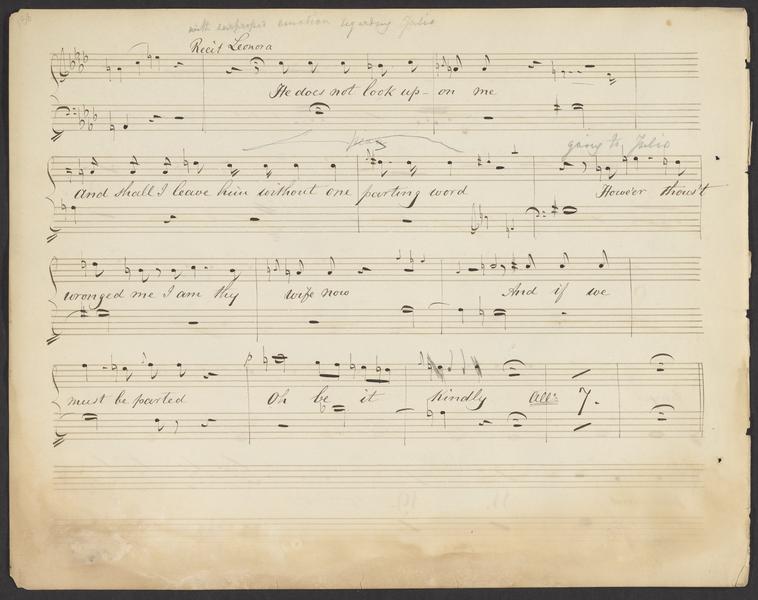 with suppressed emotion regarding Julio
Recit Leonora
He does not look up - on me
going to Julio
and shall I leave him without one parting word Howe'er thous't
wronged me I am thy wife now And if we
must be parted Oh be it kindly All: 7.